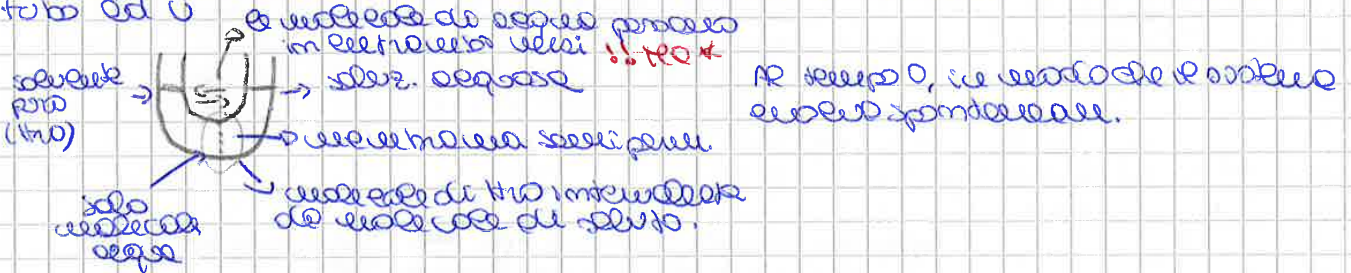 tubo ad U
le molecole di acqua passano
in entrambi versi !! NO*
solvente
puro
(H2O)
soluz. acquosa
membrana semiperm.
molecole di H2O intervallate
da molecole di soluto.
solo
molecole
acqua
Al tempo 0, in modo che il sistema
evolva spontaneam.